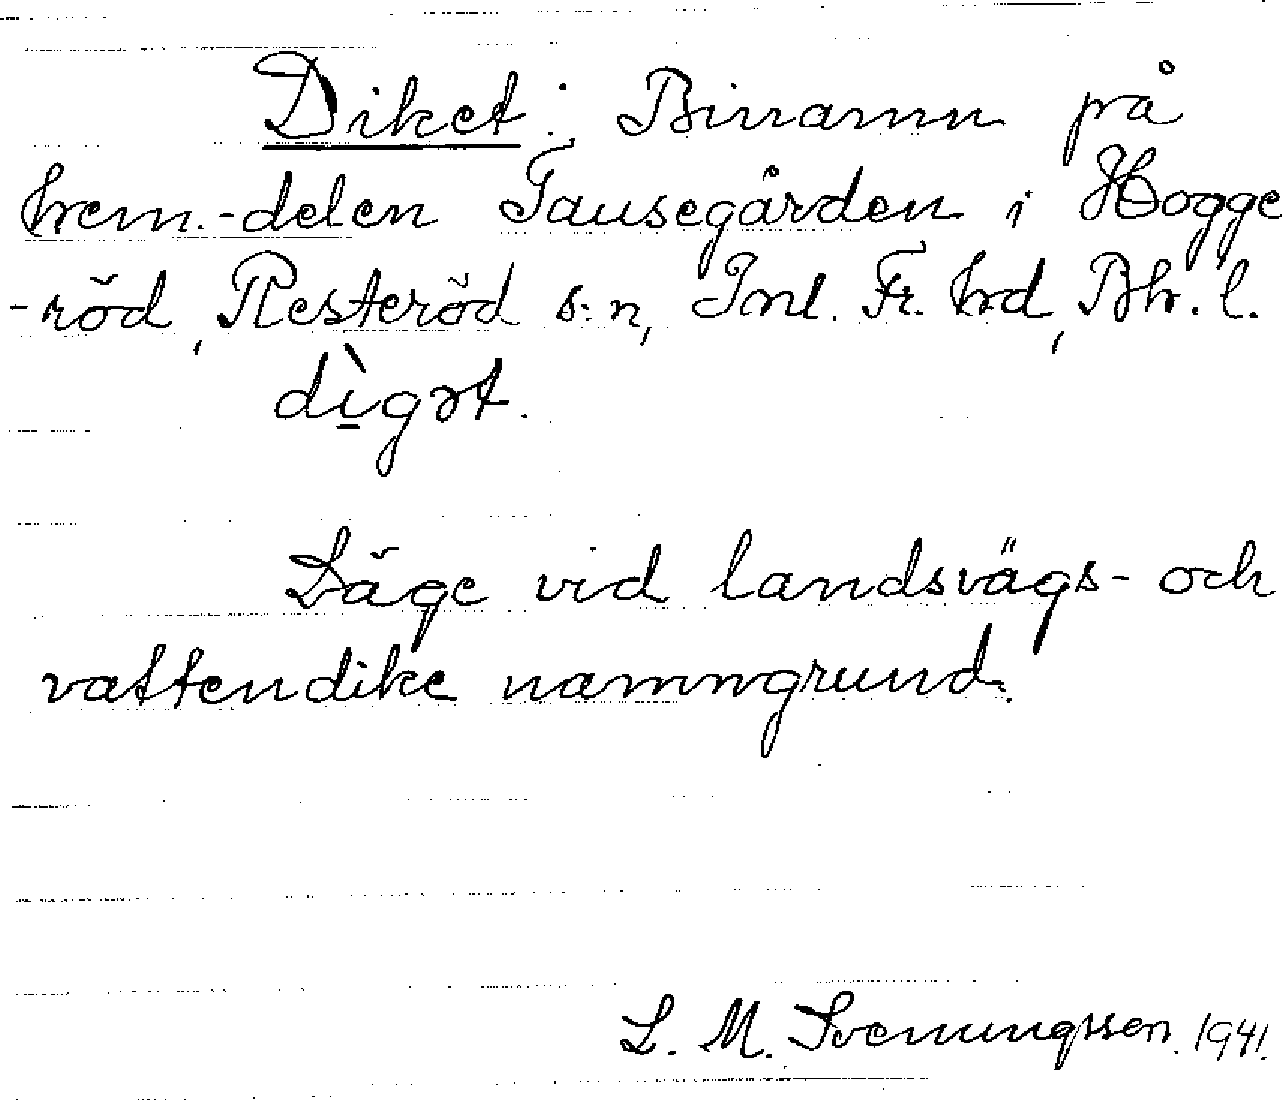 Diket: Binamn på
hem.-delen Tausegården i Hogge
-röd, Resteröd s:n, Inl. Fr. hd, Bh. l.
dìgɘt.
Läge vid landsvägs- och
vattendike namngrund.
L. M. Svenungsson. 1941.